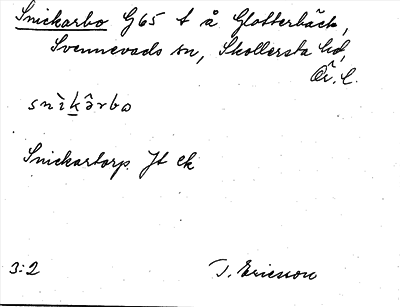 Snickarbo G65 t å Glotterbäck,
Svennevads sn, Skollersta hd,
Ör. l.
snìkârbo
Snickartorp. Jt ek
3:2
T. Ericsson